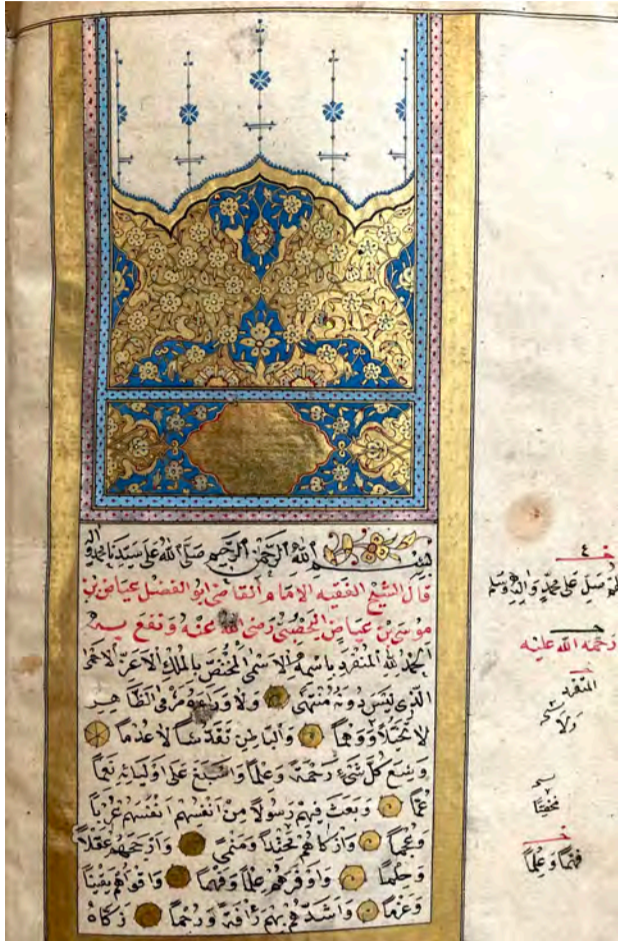 بسم الله الرحمن الرحيم صلى الله على سيدنا محمد واله
قال الشيخ الفقيه الامام القاضى ابو الفضل عياض بن
موسى بن عياض اليحصبى رضى الله عنه ونفع به
الحمد لله المنفرد باسمه الاسمى المختص بالملك الاعز الاحمى
الذى ليس دونه منتهى ولا وراءه مرمى الظاهر
لا تخيلا ووهما والباطن تقدسا لا عدما
وسع كل شئ رحمة وعلما واسبغ على اوليائه نعما
عما وبعث فيهم رسولا من انفسهم انفسهم عربا
وعجما وازكاهم محتدا ومنمى وارجحهم عقلا
وحلما واوفرهم علما وفهما واقواهم يقينا
وعزما واشدهم بهم رأفة ورحما زكاه
صل على محمد واله وسلم
رحمة الله عليه
المتفرد
ولا
فهما وعلما